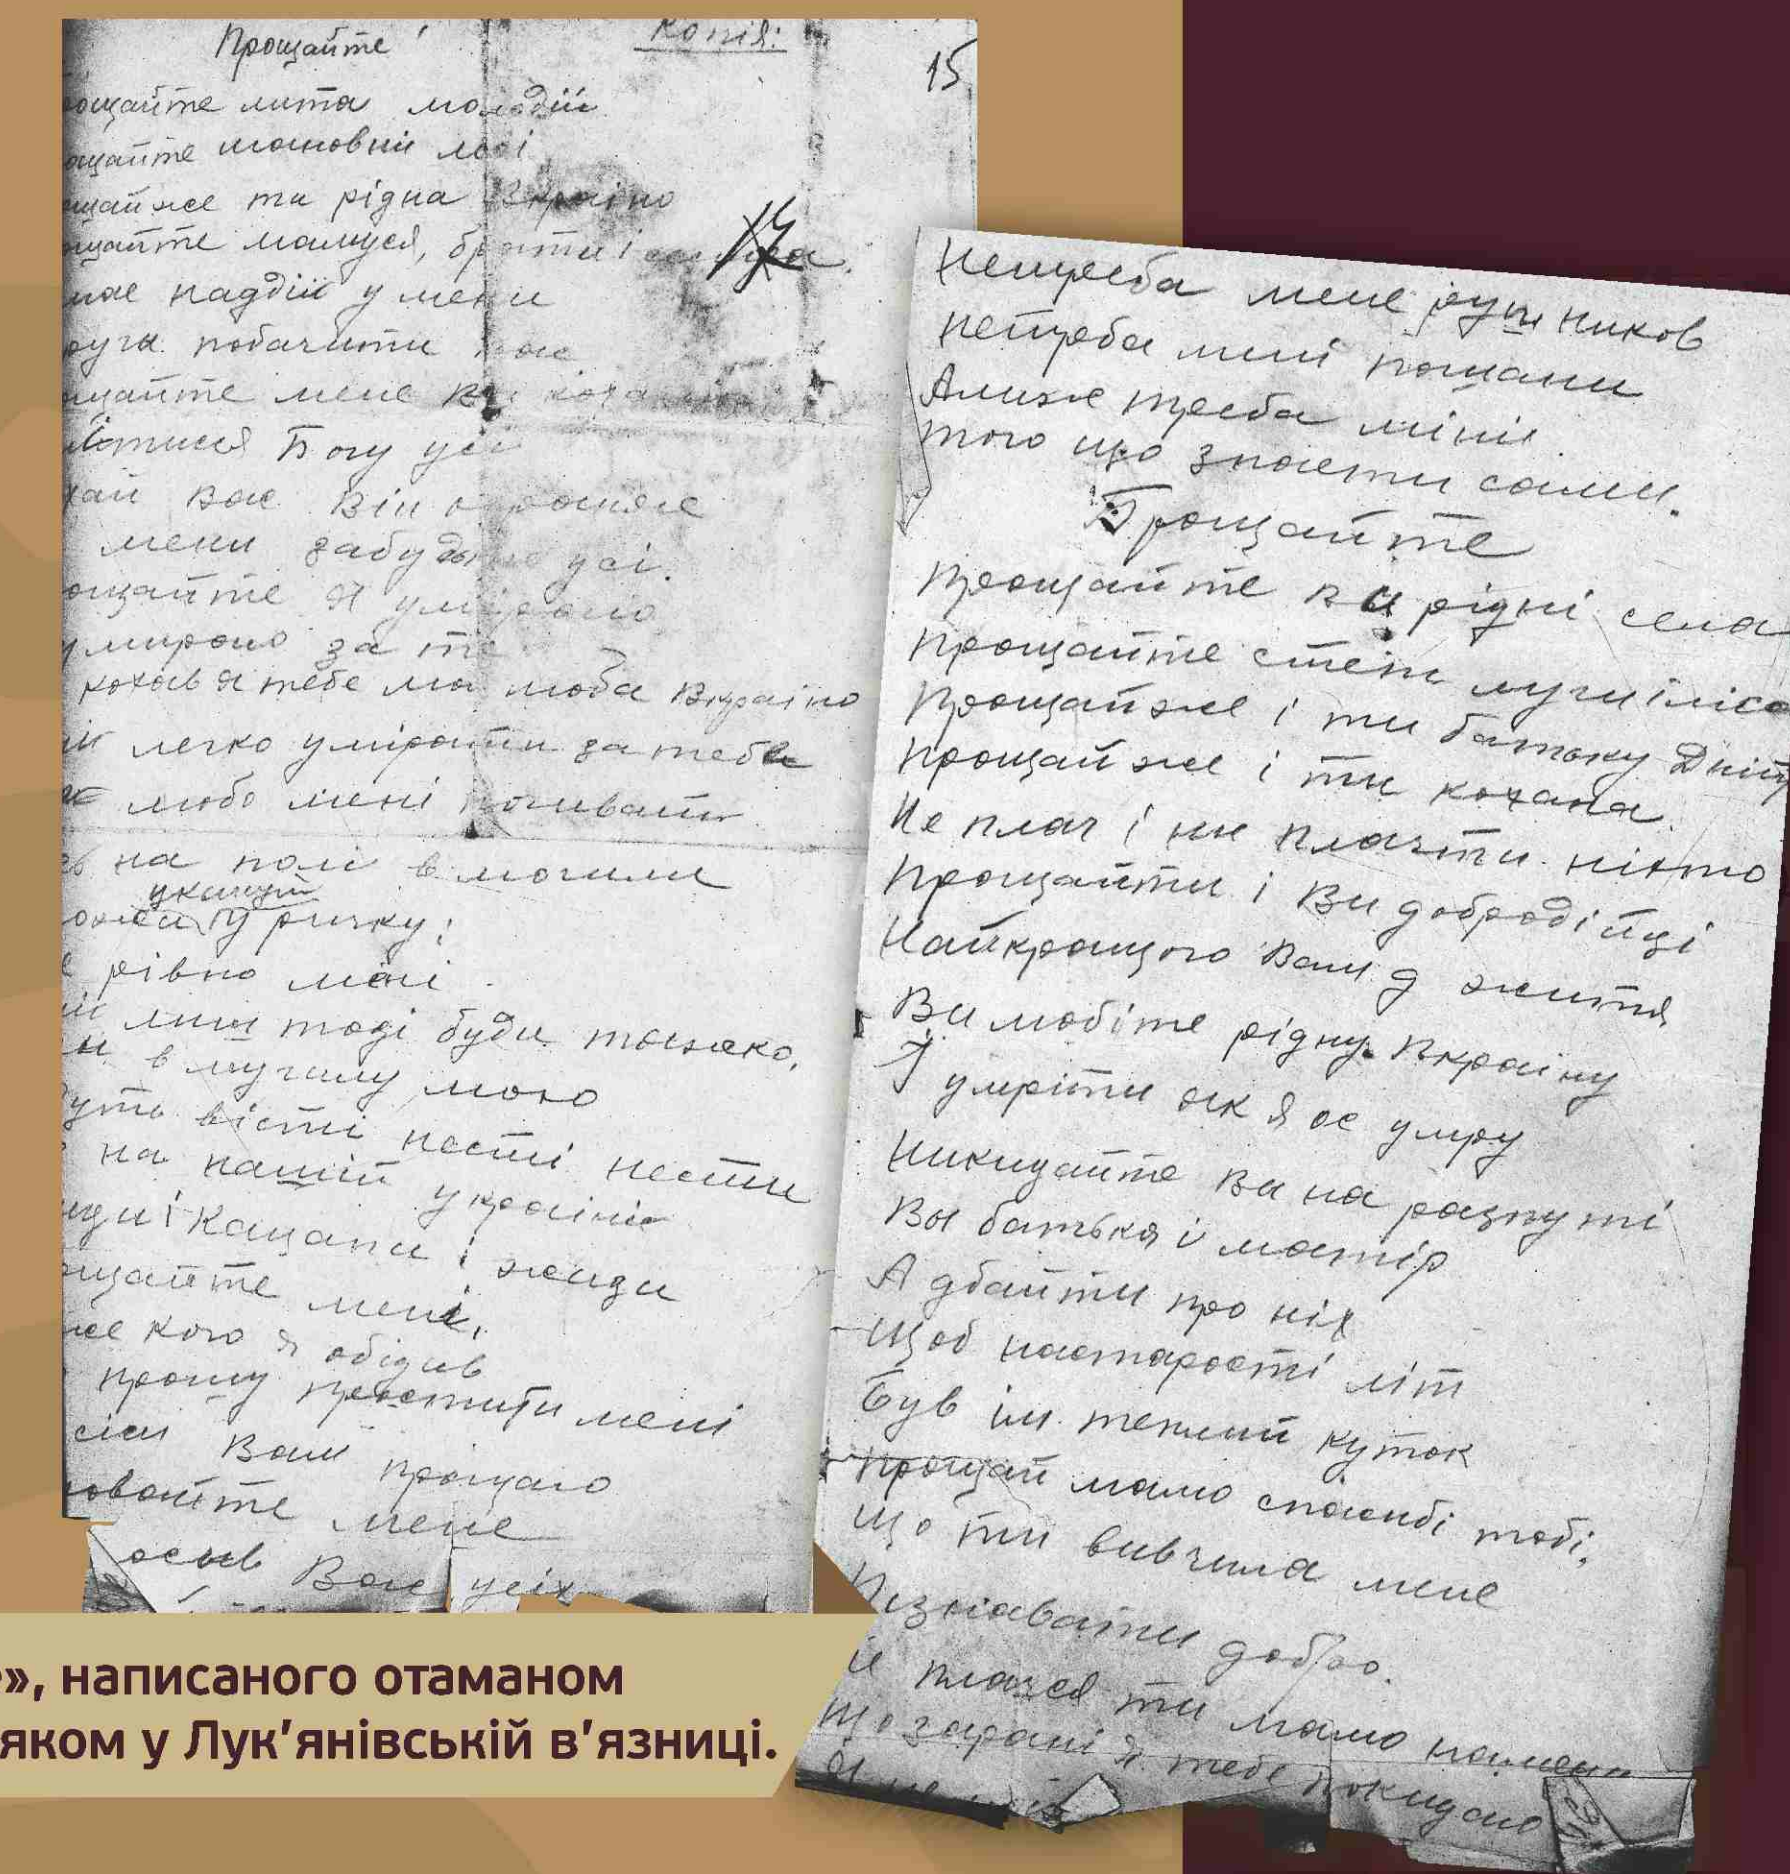 Прощайте
Копія:
15
ощайте лита молодії
ощайте мановни мої
щайже ти рідна Вкраіно
ощайте мамуся, брати і
17
має наддіи у мени
руги побачити вас
щайте мене Ви
Богу усі
хай вас Він
мени забудьте усі.
ощайте я уміраю
умираю за те
кохав я тебе моя люба Вкраіно
легко умірати за тебе
любо мені почивати
на полі в могили
укинут
у ричку;
рівно мені
лиш тоді буди тяжко,
в мугилу мою
дуть вісті нести нести
на нашій украіні
і Кацапи і жиди
ощайте мені,
кого я обідив
прошу простити мені
сім Вам прощаю
мене
Вас усіх
Нетреба мене рушников
Нетреба мені пошани
Алиже треба міні
того що знаети сами.
Прощайте
Прощайте ви рідні села
Прощайте степи луги і ліса
Прощайже і ти батьку Дніп
Прощайже і ти кохана.
Не плач і ни плачти ніхто
Прощайти і Ви добродійці
Найкращого Вам д життя
Ви любіте рідну Вкраіну
І умріти як я ос умру
Никидайте Ви на разпуті
Вы батька і матір
А дбайти про ніх
Щоб настарості літ
Був ім теплий куток
Прощай мамо спасибі тобі,
Що ти вивчила мене
Пізнавати добро.
плачся ти мамо
Що зарані я тебе покидаю
», написаного отаманом
яком у Лук’янівській в’язниці.